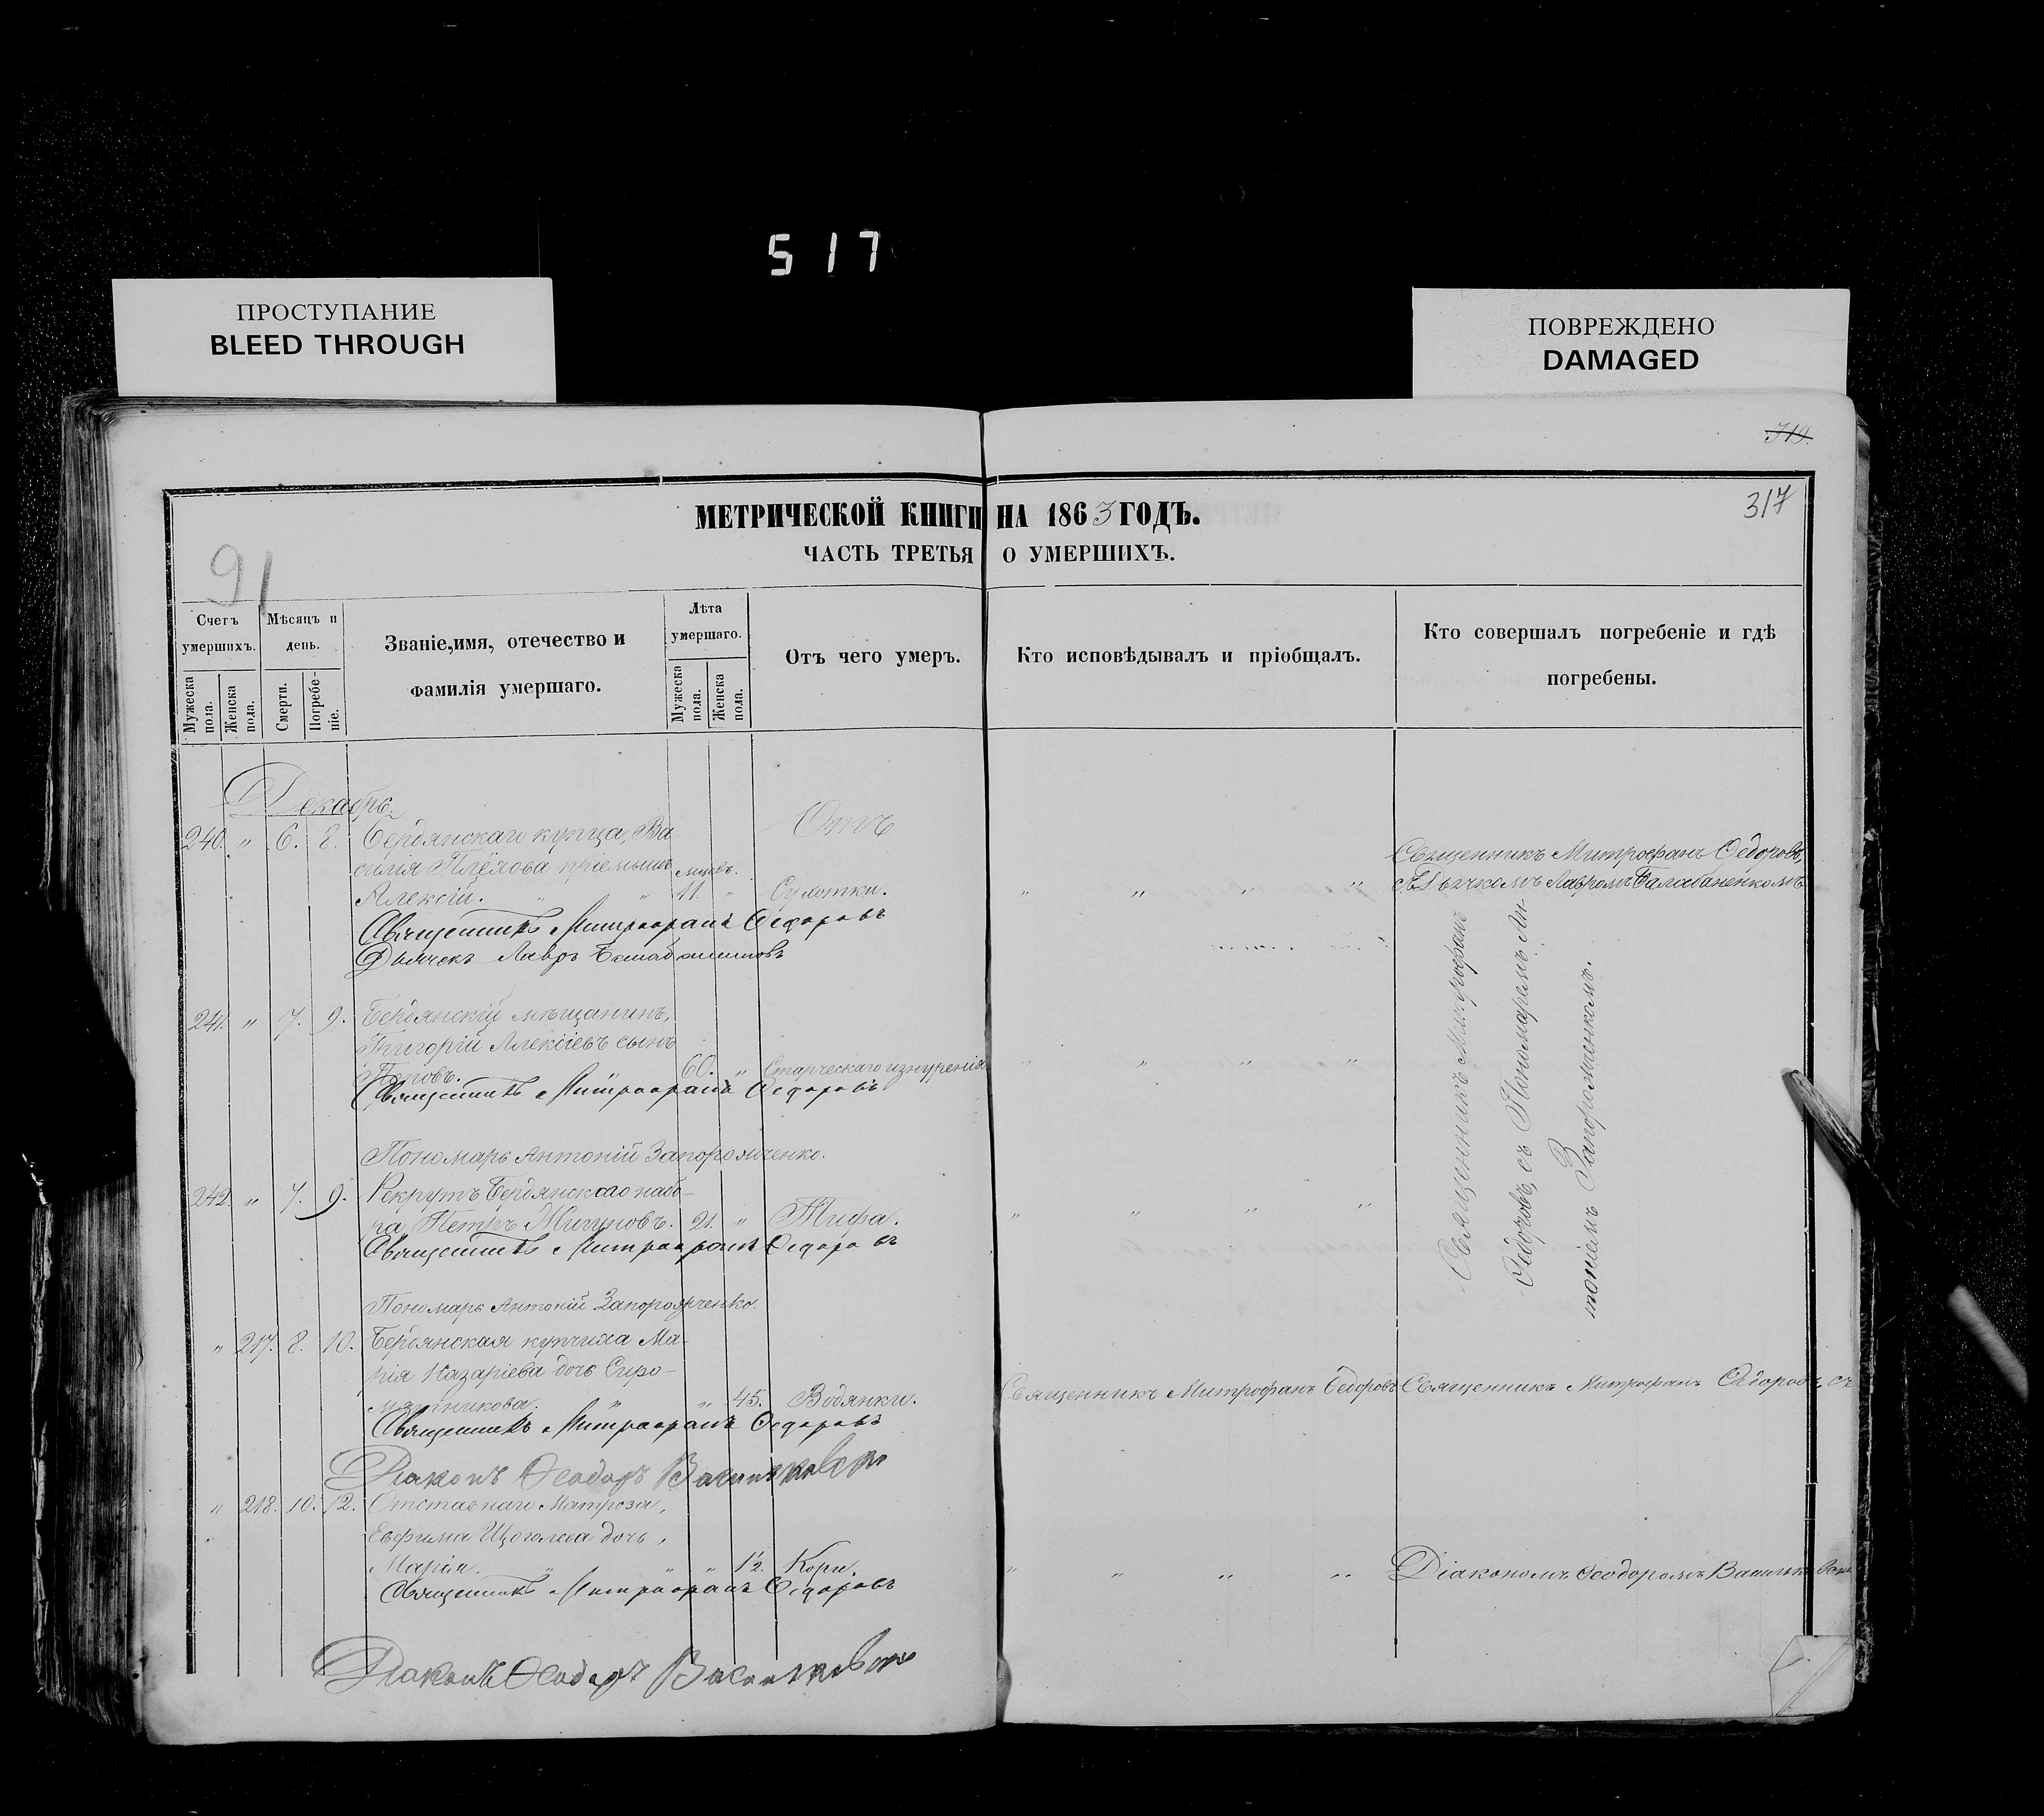 517
ПРОСТУПАНИЕ
BLEED THROUGH
ПОВРЕЖДЕНО
DAMAGED
310.
317
91
МЕТРИЧЕСКОЙ КНИГИ НА 1863 ГОДЪ.
ЧАСТЬ ТРЕТЬЯ О УМЕРШИХЪ.
Счетъ умершихъ.
Мужеска пола.
Женска пола.
Мѣсяцъ и день.
Смерти.
Погребеніе.
Званіе,имя, отечество и фамилія умершаго.
Лѣта умершаго.
Мужеска пола.
Женска пола.
Отъ чего умеръ.
Кто исповѣдывалъ и пріобщалъ.
Кто совершалъ погребеніе и гдѣ погребены.
Декабрь
240. " 6. 8. Бердянскаго купца, Ва
Отъ
силія пріемышъ мцевъ.
Алексій. " " 11. " Сухотки. " " " "
Священникъ Митрофанъ Ѳедоровъ,
съ Дьячкомъ Лавромъ Балабаненкомъ
Священникъ Митрофанъ Ѳедоровъ
Дьячекъ Лавръ
241. " 7. 9. Бердянскій мѣщанинъ,
Григорій Алексіевъ сынъ
Поповъ. 60. " Старческаго изнуренія " " " "
Священникъ Митрофанъ Ѳедоровъ
Пономарь Антоній Запорожченко.
242. " 7. 9. Рекрутъ Бердянскаго набо-
ра, Петръ Мигуновъ. 21. " Тифа. " " " "
Священникъ Митрофанъ Ѳедоровъ
Пономарь Антоній Запорожченко
Священникъ Митрофанъ
Ѳедоровъ, съ Пономаремъ Ан-
тоніемъ Запорожченкомъ.
" 217. 8. 10. Бердянская купчиха Ма-
рія Назаріева дочь Сыро-
мятникова. " " 45. Водянки. Священникъ Митрофанъ Ѳедоровъ Священникъ Митрофанъ Ѳедоровъ, съ
Священникъ Митрофанъ Ѳедоровъ
Діаконъ Ѳеодоръ
" 218. 10. 12. Отставнаго Матроза,
Евфима Щоголева дочь,
Марія. " " " 1½. Кори. " " " " Діакономъ Ѳеодоромъ
Священникъ Митрофанъ Ѳедоровъ
Діаконъ Ѳеодоръ